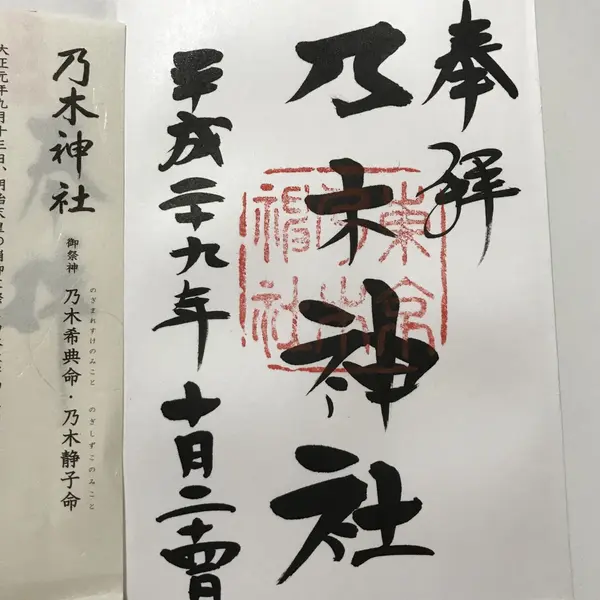 奉拝
乃木神社
平成二十九年十月二十四日
乃木神社
御祭神 乃木希典命・乃木静子命
のぎまれすけのみこと
のぎしずこのみこと
大正元年九月十三日、明治天皇の